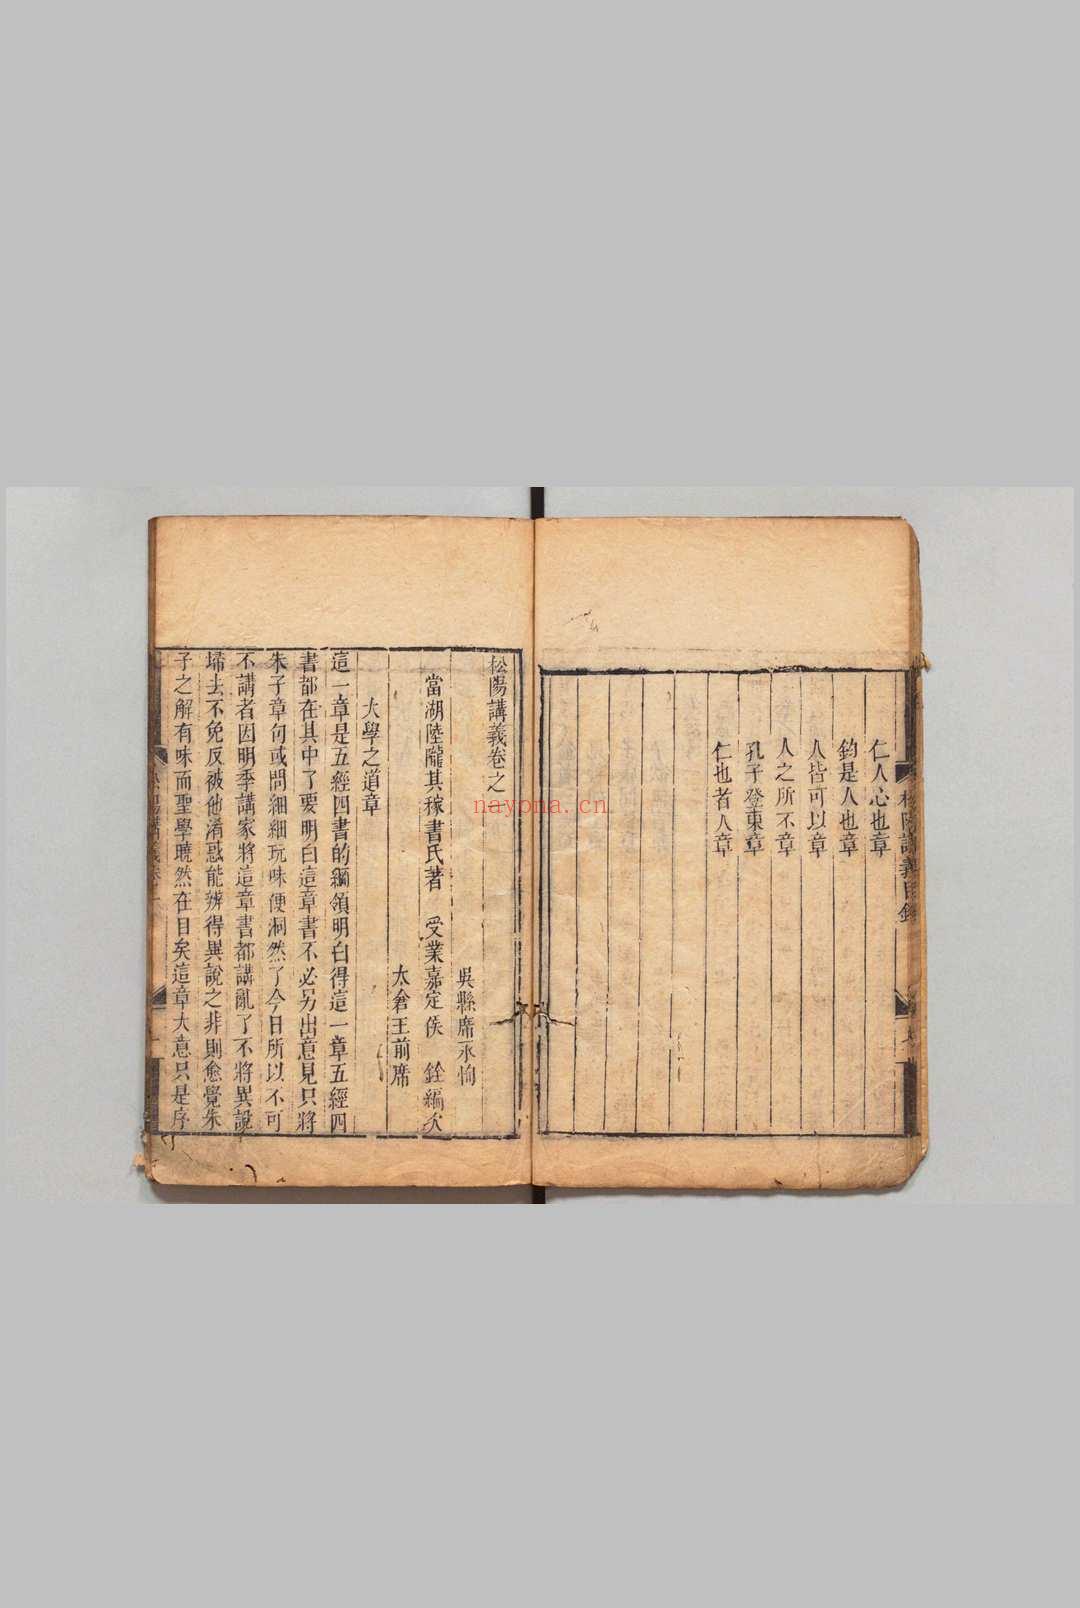 仁人心也章
鈞是人也章
人皆可以章
人之所不章
孔子登東章
仁也者人章
松陽講義卷之一
吳縣席永恂
當湖陸隴其稼書氏著 受業嘉定侯 銓編次
太倉王前席
大學之道章
這一章是五經四書的綱領明白得這一章五經四
書都在其中了要明白這章書不必另出意見只將
朱子章句或問細細玩味便洞然了今日所以不可
不講者因明季講家將這章書都講亂了不將異說
埽去不免反被他淆惑能辨得異說之非則愈覺朱
子之解有味而聖學曉然在目矣這章大意只是序
naypna.cn